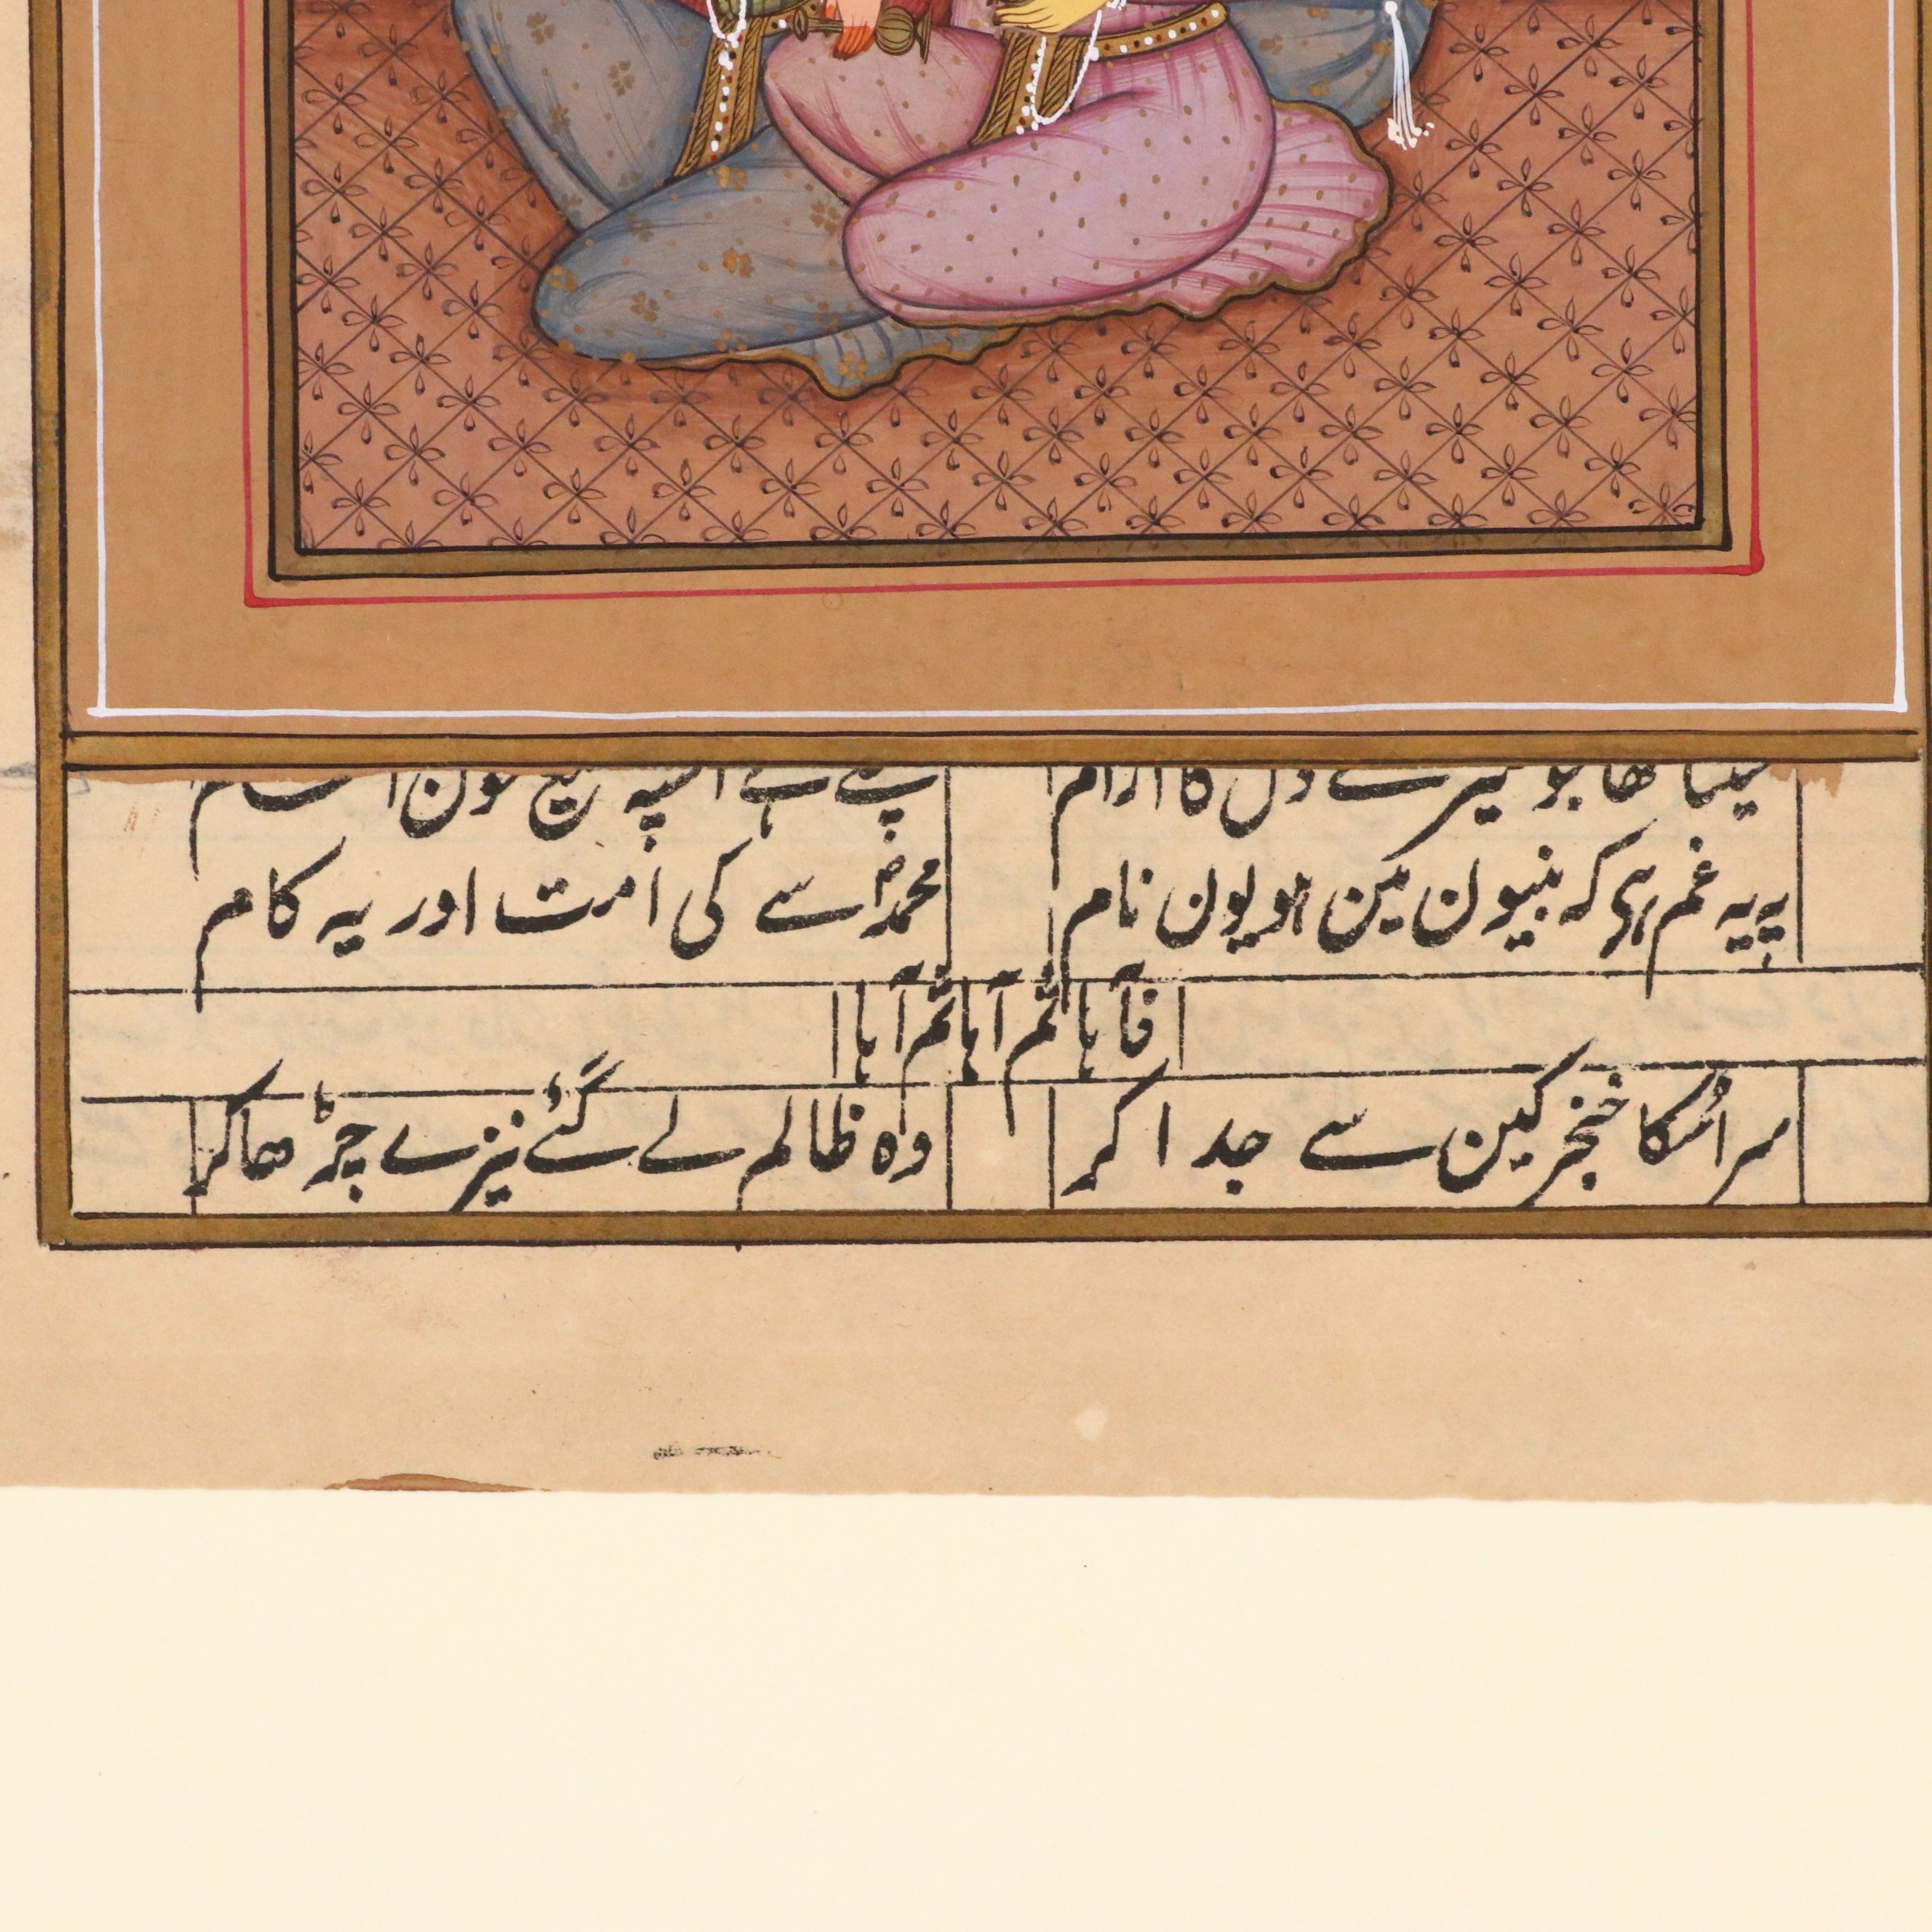 میرے دل کا آرام
پہ یہ غم ہی کہ بنیون مین ہو یون نام محمدؐ سے کی اُمت اور یہ کام
فآہا ثم آہا ثم آہا
سر اُسکا خنجر کین سے جدا کر وہ ظالم لے گئے نیزے چڑھا کر